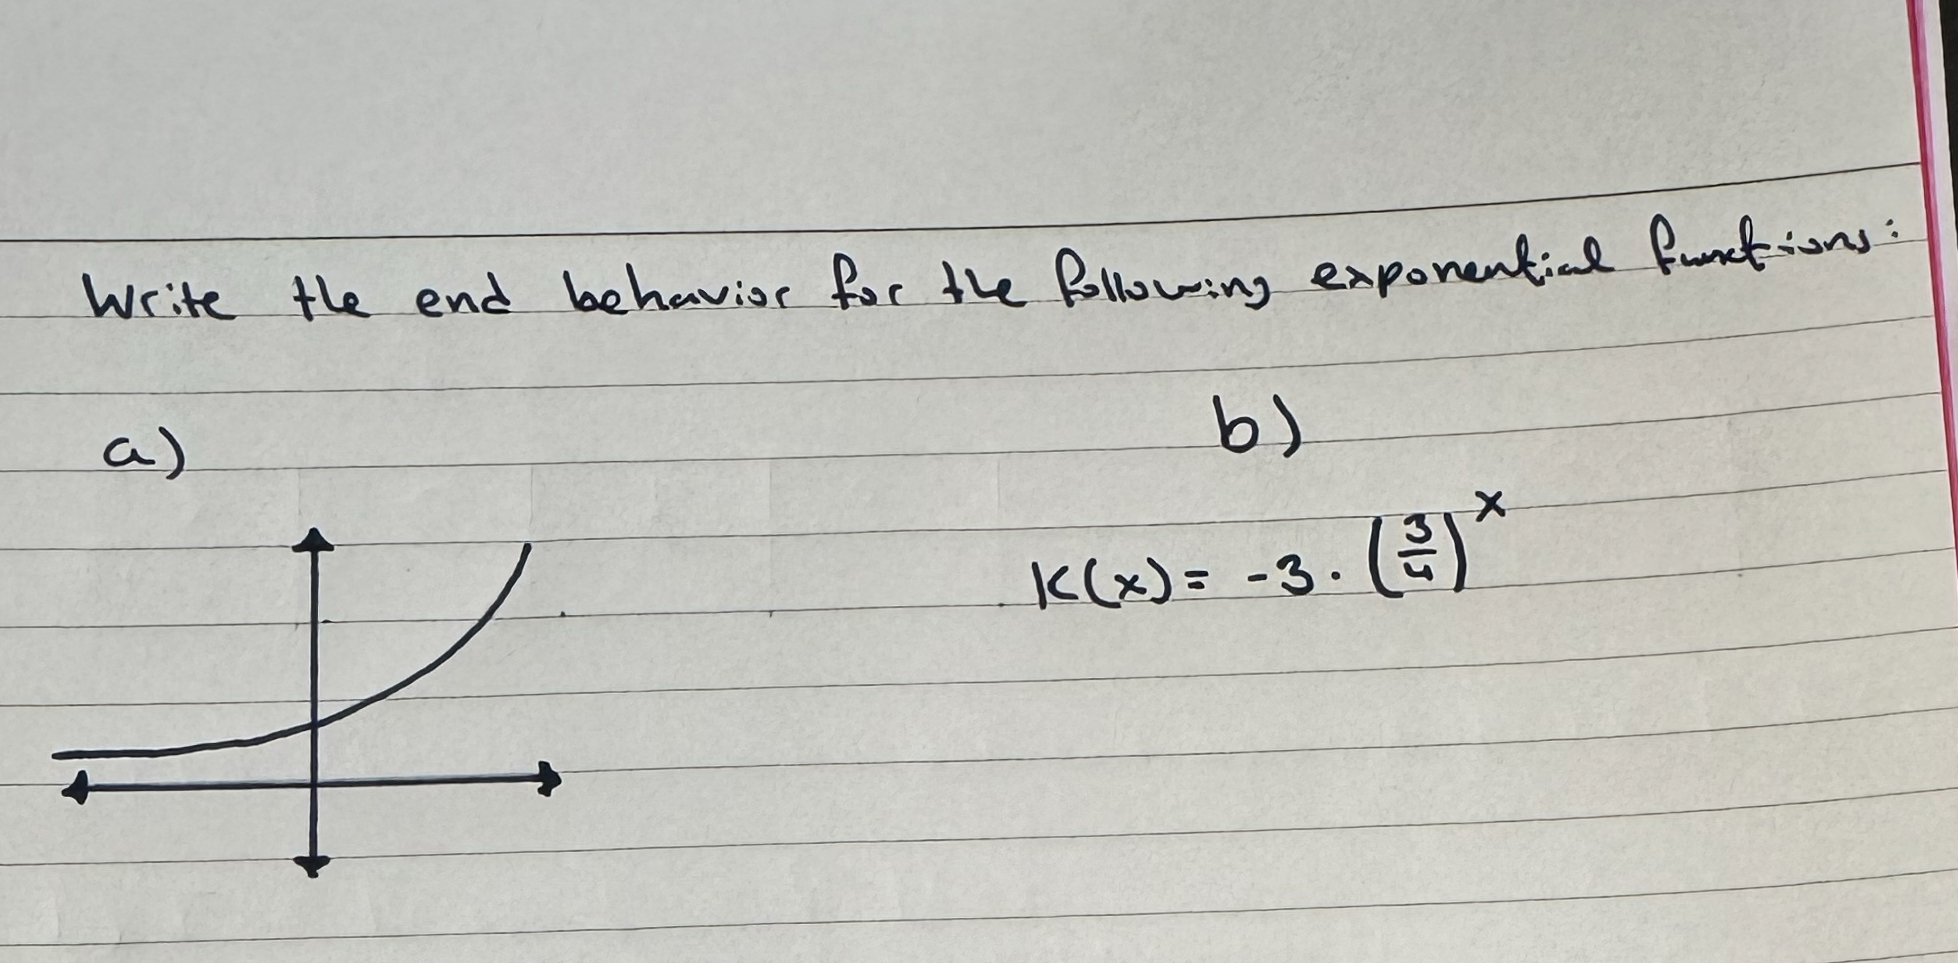 Write the end behavior for the following exponential functions:
a)
b)
K(x) = -3 · (3/4)^x